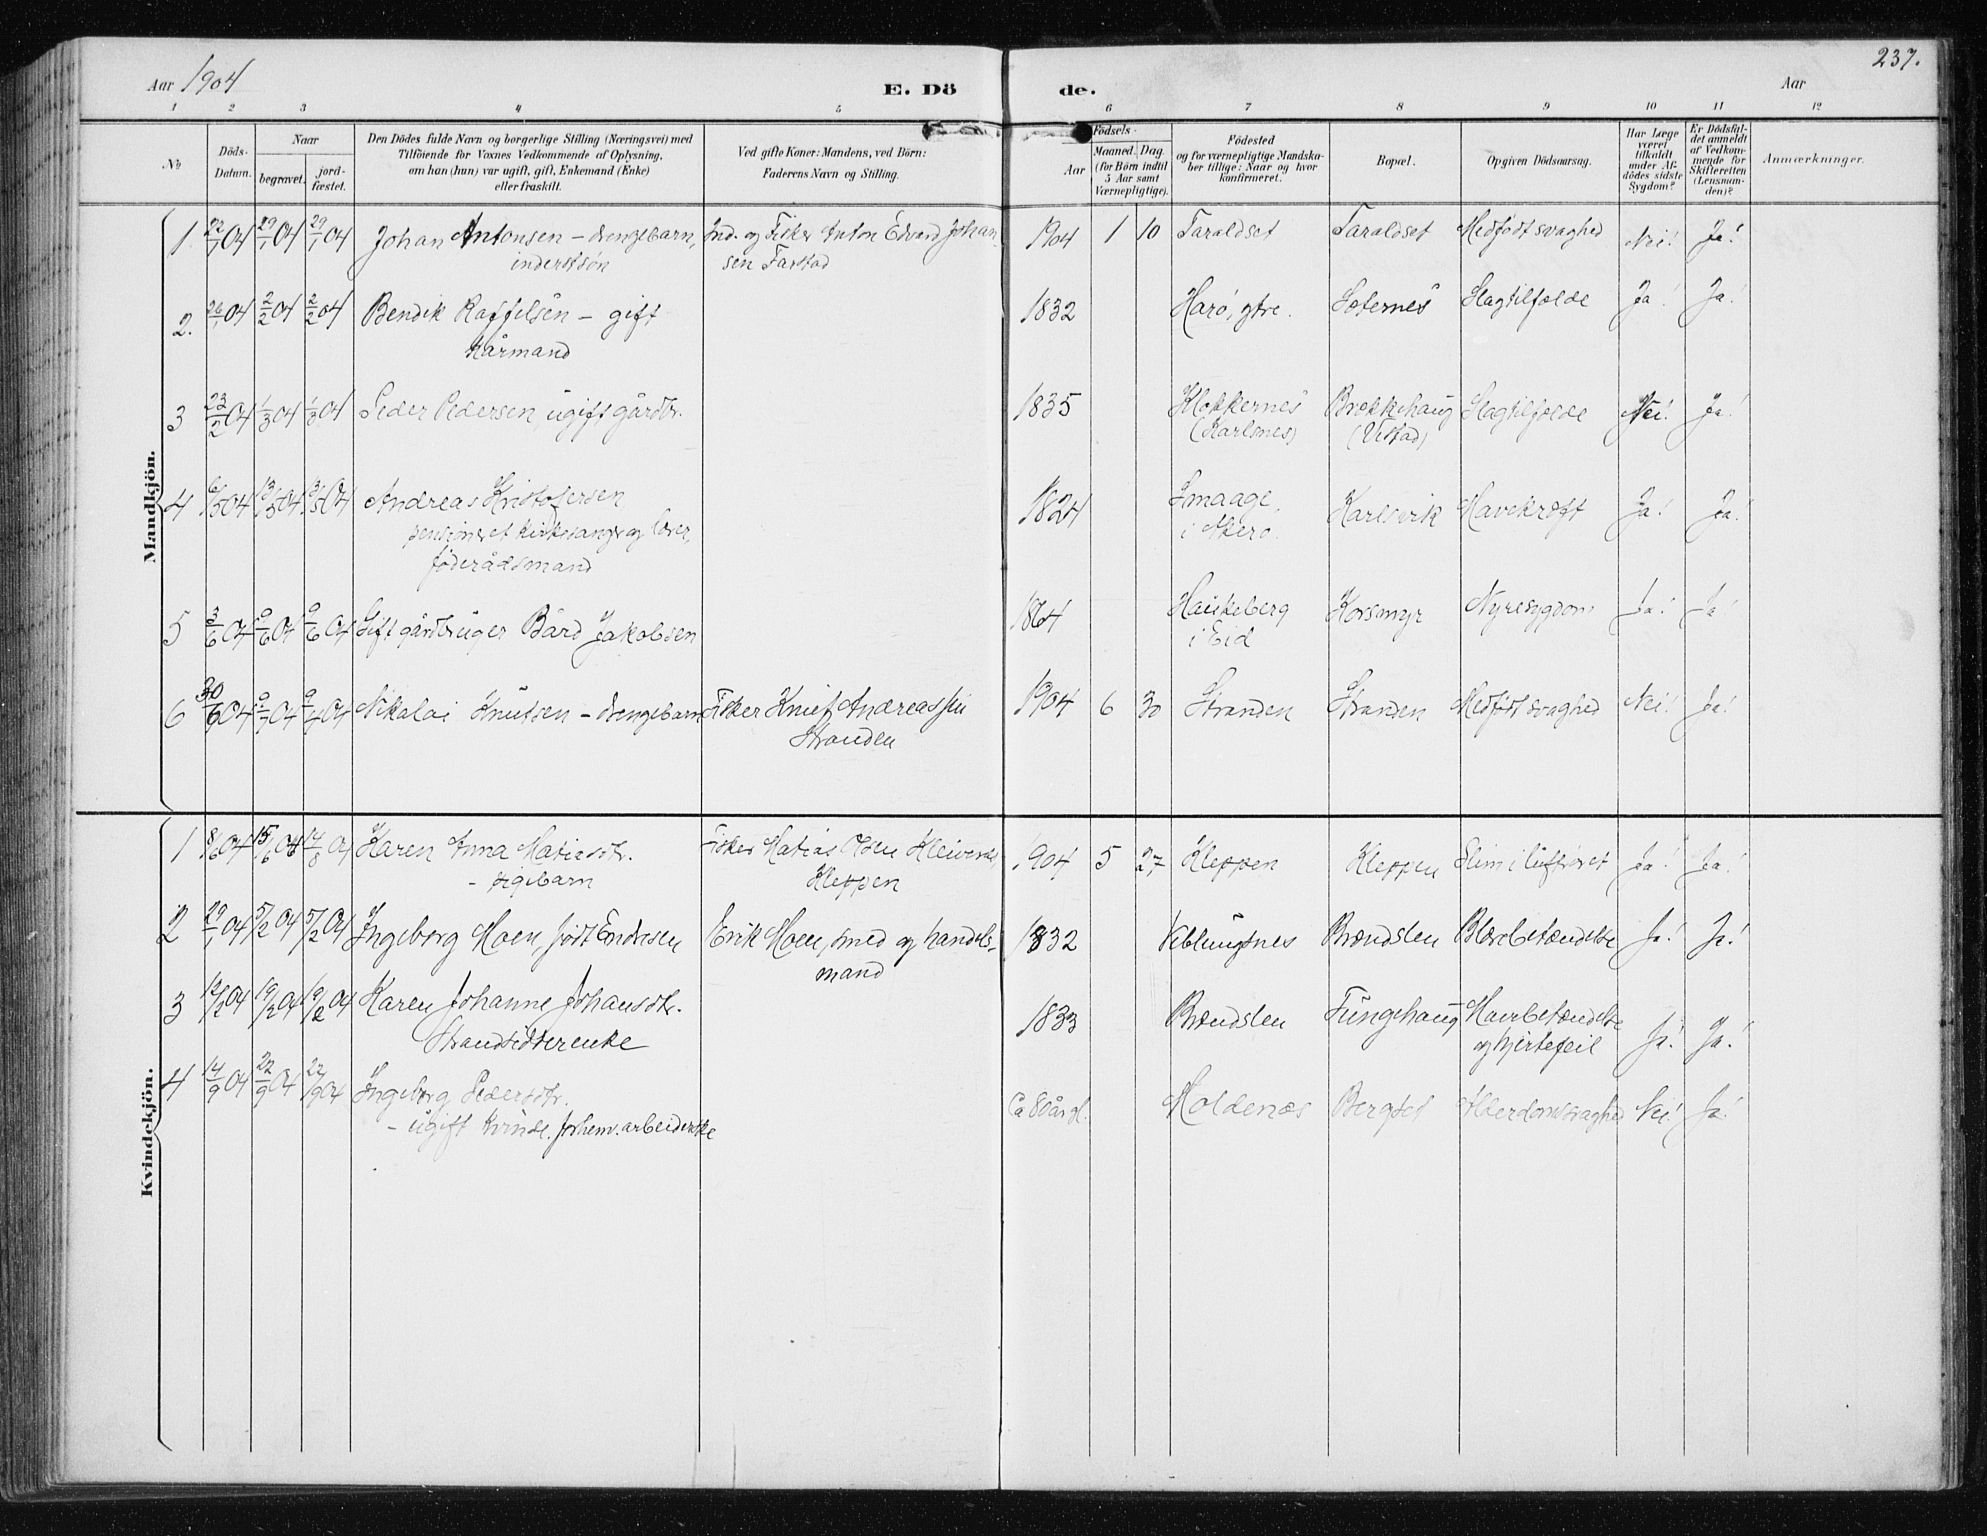 237.
Aar 1904
E. Dö de.
Aar
1 2 3 4 5 6 7 8 9 10 11 12
№
Döds-Datum.
Naar
begravet.
jord-fæstet.
Den Dödes fulde Navn og borgerlige Stilling (Næringsvei) med
Tilföiende for Voxnes Vedkommende af Oplysning,
om han (hun) var ugift, gift, Enkemand (Enke)
eller fraskilt.
Ved gifte Koner: Mandens, ved Börn:
Faderens Navn og Stilling.
Födsels-
Aar
Maaned. Dag.
(for Börn indtil
5 Aar samt
Værnepligtige).
Födested
og for værnepligtige Mandska-
ber tillige: Naar og hvor
konfirmeret.
Bopæl.
Opgiven Dödsaarsag.
Har Læge
været
tilkaldt
under Af-
dödes sidste
Sygdom?
Er Dödsfal-
det anmeldt
af Vedkom-
mende for
Skifteretten
(Lensman-
den)?
Anmærkninger.
Mandkjön.
1 22/1 04 29/1 04 29/1 04 Johan Antonsen – drengebarn, Ind. og Fisker Anton Edvard Johan- 1904 1 10 Taraldset Taraldset Medfödt svaghed Nei! Ja!
inderstsön sen Farstad
2. 26/1 04 2/2 04 2/2 04 Bendik Raffelsen – gift 1832 Harö, ytre. Soternes Slagtilfælde Ja! Ja.
kårmand
3 23/2 04 1/3 04 1/3 04 Peder Pedersen, ugift gårdbr. 1835 Klokkernes Brekkehaug Slagtilfælde Nei! Ja!
(Karlsnes) (Vestad)
4 6/5 04 13/5 04 13/5 04 Andreas Kristofersen 1824 Smaage, Karlsvik Mavekræft Ja! Ja!
pensioneret kirkesanger og lærer, i Akerö.
föderådsmand
5 3/6 04 9/6 04 9/6 04 Gift gårdbruger Bård Jakobsen 1864 Haukeberg Korsmyr Nyresygdom Ja! Ja!
i Eid
6 30/6 04 9/7 04 9/7 04 Nikolai Knutsen – drengebarn Fisker Knut Andreassen 1904 6 30 Stranden Stranden Medfödt svaghed Nei! Ja!
Stranden
Kvindekjön.
1 8/6 04 15/6 04 14/8 04 Karen Anna Matiasdtr. Fisker Matias Olsen 1904 5 27 Kleppen Kleppen Slim i luftröret Ja! Ja!
– pigebarn Kleppen
2 29/1 04 5/2 04 5/2 04 Ingeborg Moen, födt Endresen Erik Moen, smed og handels- 1832 Veblungsnes Brændslen Blærebetændelse Ja! Ja!
mand
3 12/2 04 19/2 04 19/2 04 Karen Johanne Johansdtr. 1833 Brændslen Tungehaug Mavebetændelse Ja! Ja!
Strandsidderenke og hjertefeil
4 14/9 04 22/9 04 22/9 04 Ingeborg Pedersdtr. Ca 80 år gl. Moldenæs Bergset Alderdomssvaghed Nei! Ja!
– ugift kvinde. forhenv. arbeiderske